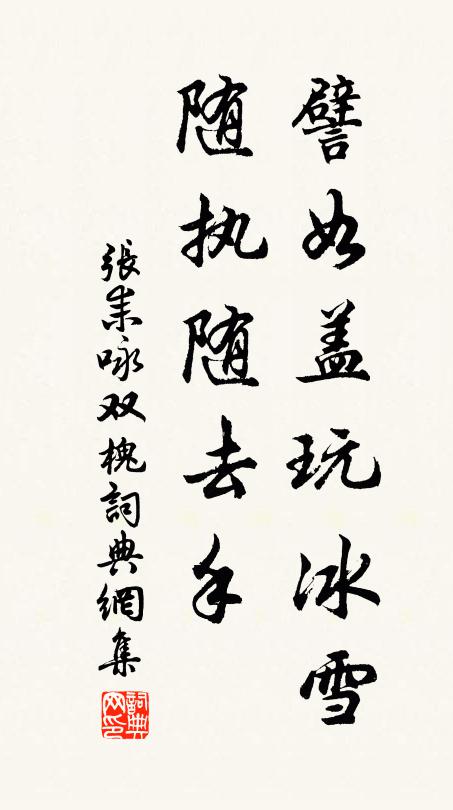 譬如盖玩冰雪
随执随去手
張耒咏双槐詞典網集
詞典网印